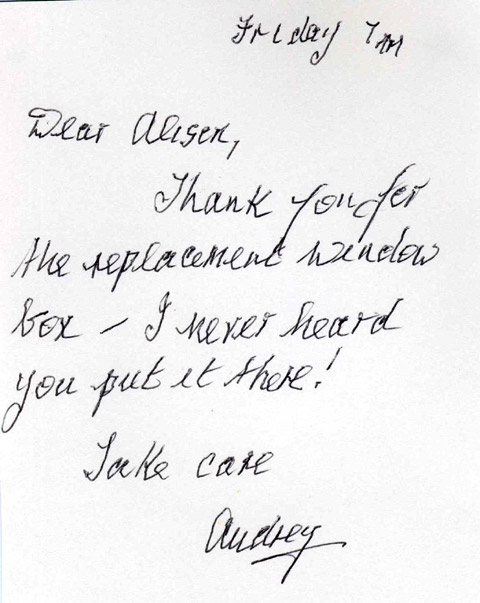 Friday 7pm
Dear Alison,
Thank you for
the replacement window
box – I never heard
you put it there!
Take care
Audrey